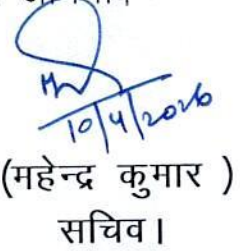 10/4/2026
(महेन्द्र कुमार )
सचिव।